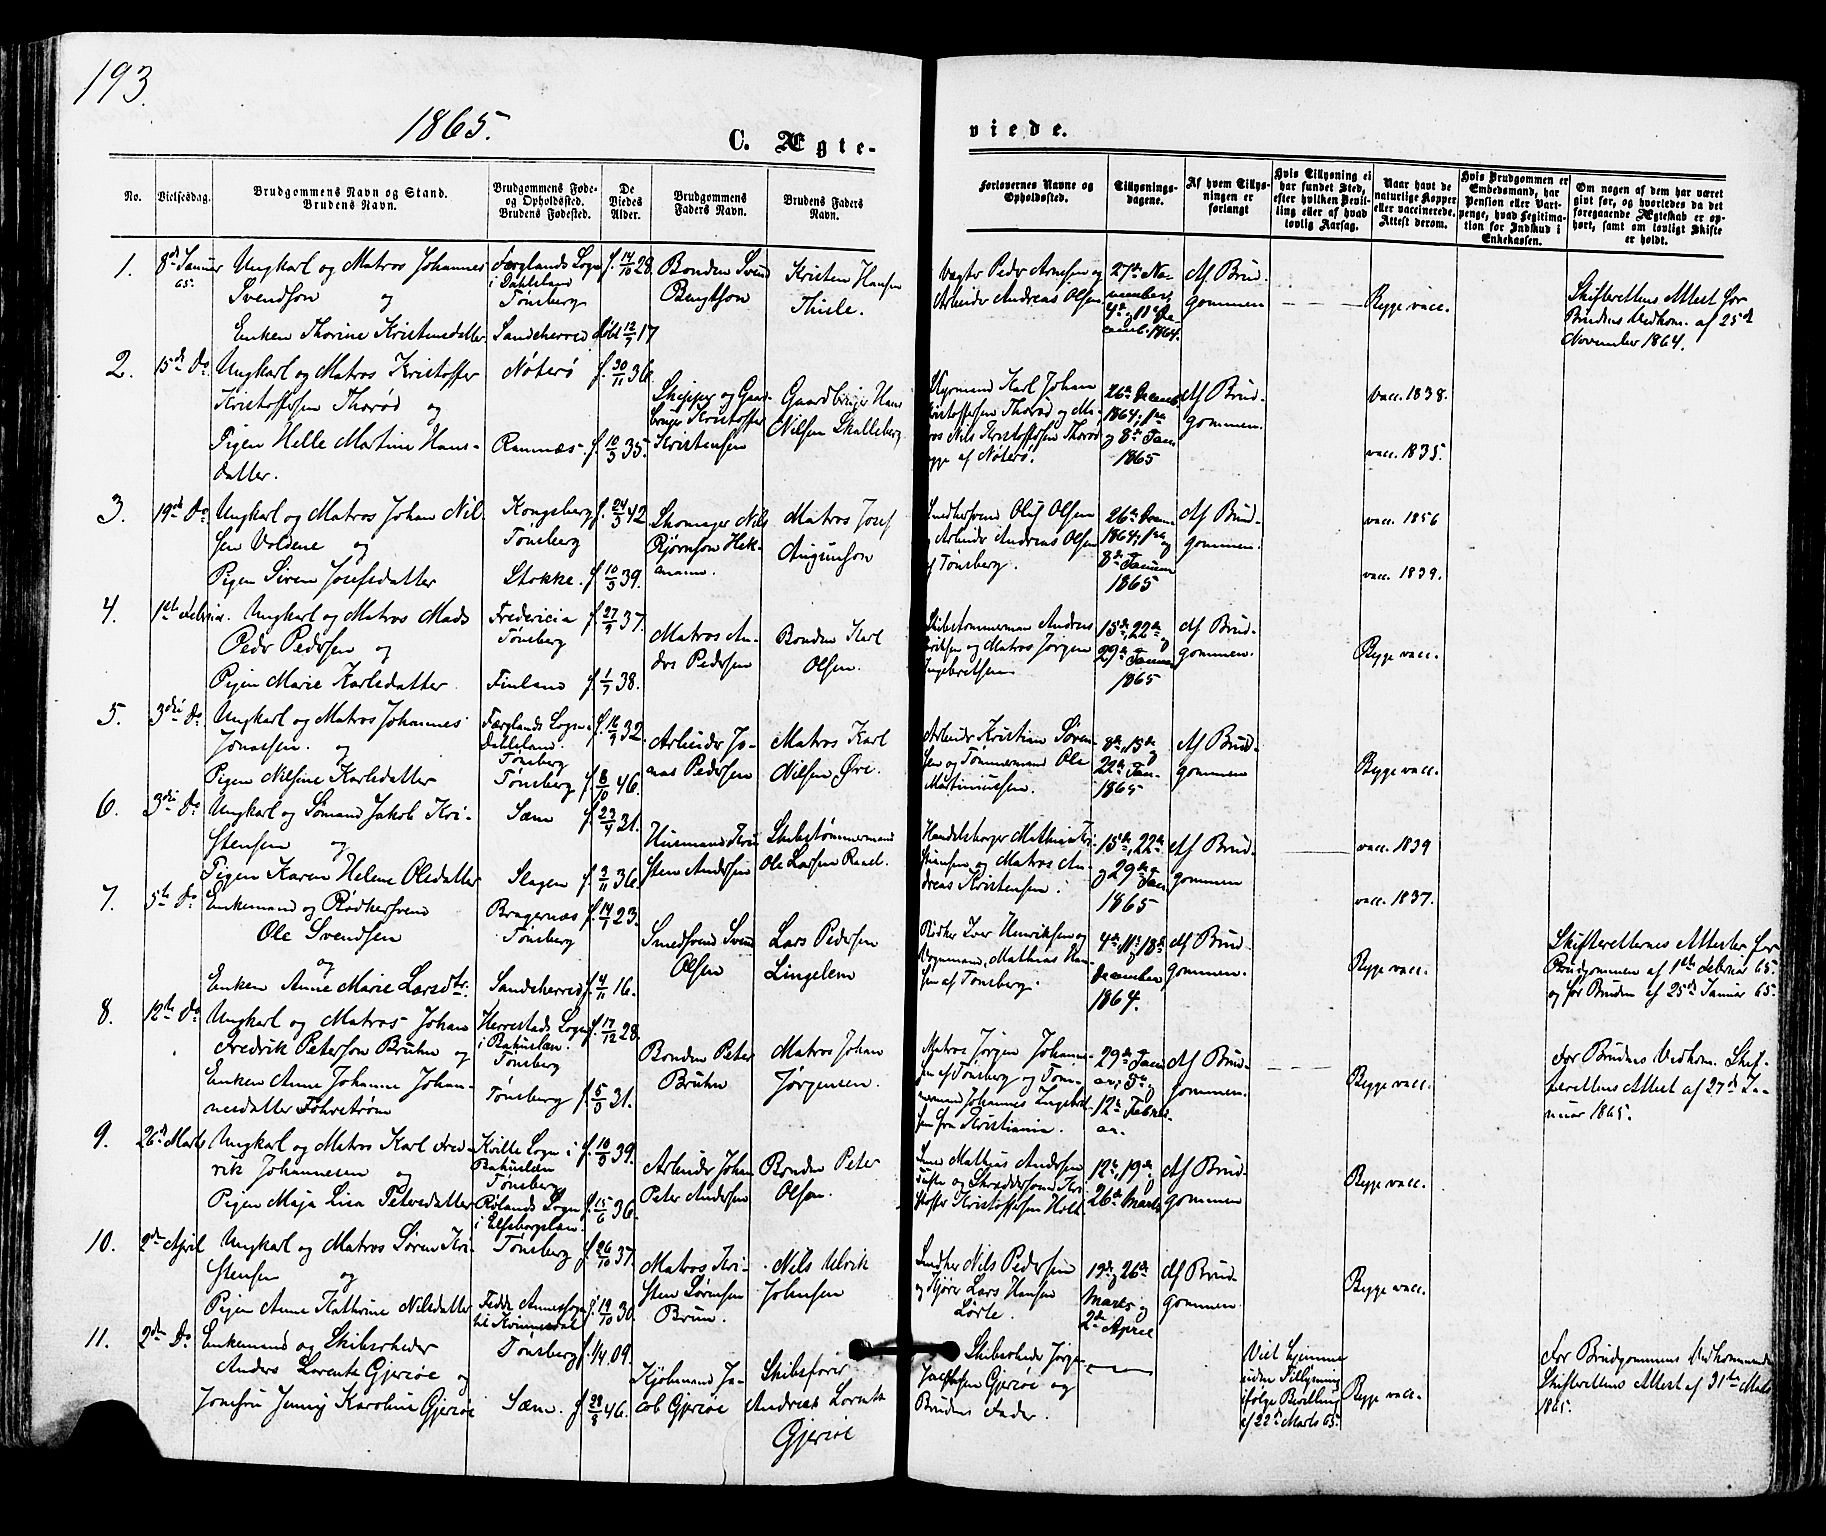 193.
1865.
C. Ægte-
viede.
No.
Vielsesdag.
Brudgommens Navn og Stand.
Brudens Navn.
Brudgommens Føde-
og Opholdsted.
Brudens Fødested.
De
Viedes
Alder.
Brudgommens
Faders Navn.
Brudens Faders
Navn.
Forlovernes Navne og
Opholdssted.
Tillysnings-
dagene.
Af hvem Tillys-
ningen er
forlangt
Hvis Tillysning ei
har fundet Sted,
efter hvilken Bevil-
ling eller af hvad
lovlig Aarsag.
Naar havt de
naturlige Kopper
eller vaccinerede.
Attest derom.
Hvis Brudgommen er
Embedsmand, har
Pension eller Vart-
penge, hvad Legitima-
tion for Indskud i
Enkekassen.
Om nogen af dem har været
gift før, og hvorledes da det
foregaaende Ægteskab er op-
hørt, samt om lovligt Skifte
er holdt.
1.
8de Januar
65.
Ungkarl og Matros Johannes
Svendson og
Enken Thorine Kristensdatter
Færglands Sogn
i Dahlsland
Tønsberg
Sandeherred
f. 14/10 28.
døbt 12/7 17
Bonden Svend
Bengtson
Kristen Hansen
Thisle.
Vægter Peder Arnesen og
Arbeider Andreas Olsen
27de No-
vember,
4de, 11te De-
cemb. 1864.
Af Brud-
gommen
Begge vacc.
Skifterettens Attest for
Brudens Vedkom. af 25de
November 1864.
2.
15de Do
Ungkarl og Matros Kristoffer
Kristoffersen Thorød og
Pigen Helle Martine Hans-
datter.
Nøterø
Ramnæs
f. 30/11 36.
f. 10/3 35.
Skipper og Gaard-
bruger Kristoffer
Kristensen
Gaardbruger Hans
Nilsen Skalleberg
Styrmand Karl Johan
Kristoffersen Thorød og Ma-
tros Nils Kristoffersen Thorød
begge af Nøterø.
26de Decemb.
1864, 1ste
og 8de Jan.
1865
Af Brud-
gommen.
vacc. 1838.
vacc. 1835.
3.
19de Do
Ungkarl og Matros Johan Nil-
sen Voldene og
Pigen Siren Josefsdatter
Kongsberg
Tønsberg
Stokke.
f. 24/5 42
f. 10/3 39.
Skomager Nils
Bjørnson Hek-
smann.
Matros Josef
Augunson
Smedsvend Oluf Olsen
og Arbeider Andreas Olsen
af Tønsberg.
26de Decem.
1864, 1ste og
8de Januar
1865
Af Brud-
gommen.
vacc. 1856
vacc. 1839.
4.
1ste Februar.
Ungkarl og Matros Mads
Peder Pedersen og
Pigen Marie Karlsdatter
Fredericia
Tønsberg
Finland
f. 27/9 37.
f. 1/7 38.
Matros An-
ders Pedersen
Bonden Karl
Olsen.
Skibstømmermand Andreas
Eriksen og Matros Jørgen
Ingebretsen
15de, 22de og
29de Januar
1865
Af Brud-
gommen.
Begge vacc.
5.
3die Do
Ungkarl og Matros Johannes
Jonassen. og
Pigen Nilsine Karlsdatter
Færglands Sogn i
Dahlsland.
Tønsberg
Tønsberg
f. 16/9 32
f. 8/10 46.
Arbeider Jo-
nas Pedersen
Matros Karl
Nilsen Øre.
Arbeider Kristian Søren-
sen og Tømmermand Ole
Martiniussen.
8de, 15de og
22de Jan.
1865
Af Brud-
gommen
Begge vacc.
6.
3die Do
Ungkarl og Sømand Jakob Kri-
stensen og
Pigen Karen Helene Olsdatter
Sæm
Slagen
f. 23/4 31.
f. 3/11 36.
Husmand Kri-
sten Andersen
Skibstømmermand
Ole Larsen Ravel.
Handelsborger Mathias Kri-
stiansen og Matros An-
dreas Kristensen.
15de, 22de
og 29de Jan
1865
Af Brud-
gommen
vacc. 1839
vacc. 1837.
7.
5te Do
Enkemand og Rødkersvend
Ole Svendsen
og
Enken Anne Marie Larsdtr.
Bragernæs
Tønsberg
Sandeherred
f. 14/7 23.
f. 4/11 16.
Smedsvend Svend
Olsen
Lars Pedersen
Lingelem
Bødker Iver Henriksen og
Vognmand Mathias Han-
sen af Tønsberg.
4de, 11te, 18de
December
1864.
Af Brud-
gommen.
Begge vacc.
Skifterettens Attester for
Brudgommen af 1ste Februar 65.
og for Bruden af 25de Januar 65.
8.
12te Do
Ungkarl og Matros Johan
Fredrik Peterson Bruhn og
Enken Anne Johanne Johan-
nesdatter Fohrstrøm
Herrestads Sogn
i Bahuslen.
Tønsberg
Tønsberg
f. 17/12 28.
f. 5/3 31.
Bonden Peter
Bruhn
Matros Johan
Jørgensen.
Matros Jørgen Johann-
sen af Tønsberg og Tøm-
mermand Johannes Ingebret-
sen fra Kristiania.
29de Janu-
ar, 5te og
12te Febru-
ar.
Af Brud-
gommen.
Begge vacc.
For Brudens Vedkom. Skif-
terettens Attest af 27de Ja-
nuar 1865.
9.
26de Marts
Ungkarl og Matros Karl Fred-
rik Johannesen og
Pigen Maja Lisa Petersdatter
Kville Sogn i
Bahuslen
Tønsberg
Rølands Sogn
i Elfsborgslen.
f. 10/3 39.
f. 15/6 36.
Arbeider Johan
Peter Andersen
Bonden Peter
Olsen.
Mathias Andersen
og Skræddersvend Kri-
stoffer Kristoffersen Holt
12te, 19de og
26de Marts
Af Brud-
gommen
Begge vacc.
10.
2den April
Ungkarl og Matros Søren Kri-
stensen og
Pigen Anne Kathrine Nilsdatter
Tønsberg
Fedde Annexsogn
til Kvinnesdal
f. 26/10 37.
f. 19/10 30.
Matros Kri-
sten Sørensen
Brun.
Nils Ulrik
Johnsen
Snedker Nils Pedersen
og Kjører Lars Hansen
Lørte.
19de, 26de
Marts og
2den April
Af Brud-
gommen
Begge vacc.
11.
2den Do
Enkemand og Skibsrheder
Anders Lorents Gjerøe og
Jomfru Jenny Karoline Gjerøe
Tønsberg
Sæm.
f. 1/4 09.
f. 28/8 46.
Kjøbmand Ja-
cob Gjerøe
Skibsfører
Andreas Lorents
Gjerøe
Skibsrheder Jørgen
Jacobsen Gjerøe og
Brudens Fader.
Viet hjemme
uden Tillysning
ifølge Bevilling
af 22de Marts 65.
Begge vacc.
For Brudgommens Vedkommende
Skifterettens Attest af 31te Marts
1865.